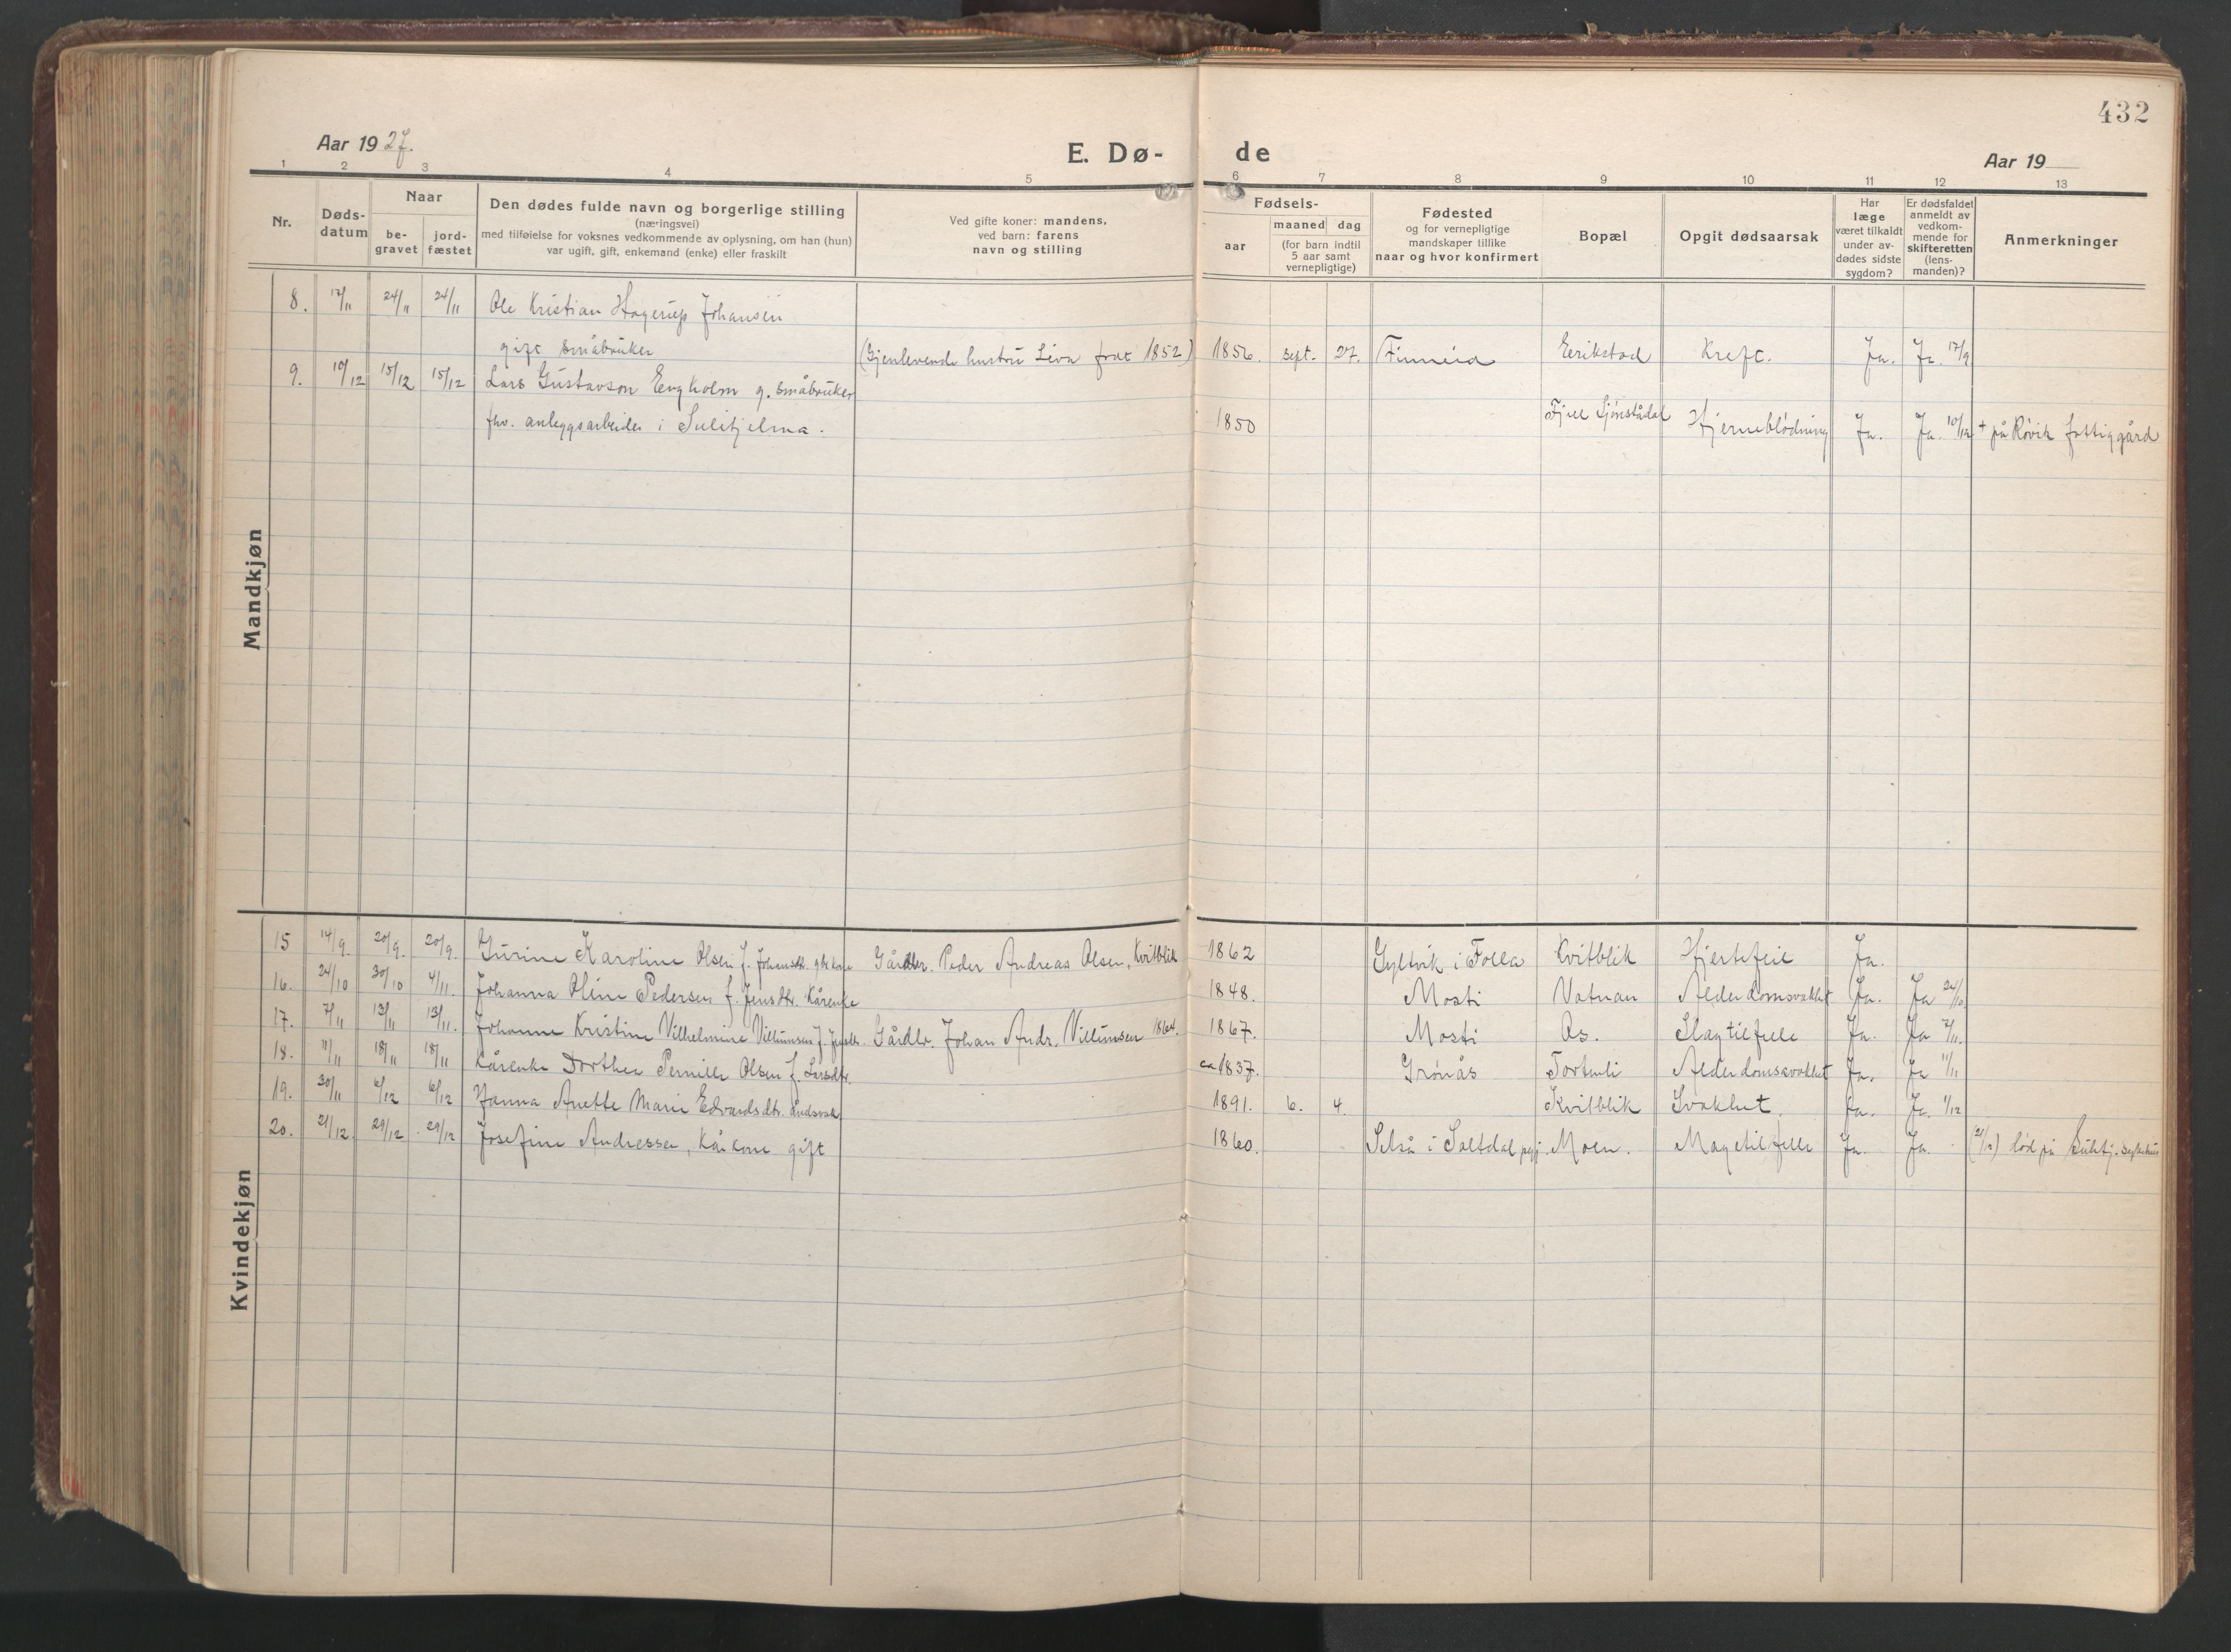 432
Aar 1927.
E. Dø-
de
Aar 19
1 2 3 4 5 6 7 8 9 10 11 12 13
Nr.
Døds-
datum
Naar
be-
gravet
jord-
fæstet
Den dødes fulde navn og borgerlige stilling
(næringsvei)
med tilføielse for voksnes vedkommende av oplysning, om han (hun)
var ugift, gift, enkemand (enke) eller fraskilt
Ved gifte koner: mandens,
ved barn: farens
navn og stilling
Fødsels-
aar
maaned dag
(for barn indtil
5 aar samt
vernepligtige)
Fødested
og for vernepligtige
mandskaper tillike
naar og hvor konfirmert
Bopæl
Opgit dødsaarsak
Har
læge
været tilkaldt
under av-
dødes sidste
sygdom?
Er dødsfaldet
anmeldt av
vedkom-
mende for
skifteretten
(lens-
manden)?
Anmerkninger
Mandkjøn
8. 17/11 24/11 24/11 Ole Kristian Hagerup Johansen
gift småbruker (Gjenlevende hustru Liva født 1852) 1856. sept. 27. Finneid Eerikstad Kreft. Ja. Ja. 17/9
9. 10/12 15/12 15/12 Lars Gustavson Eengholm g. småbruker
fhv. anleggsarbeider i Sulitjelma. 1850 Fjell Sjønstådal Hjerneblødning Ja. Ja. 10/12 † på Røvik fattiggård
Kvindekjøn
15 14/9. 20/9. 20/9. Gurine Karoline Olsen f. Johansdtr. Gårdbr. Peder Andreas Olsen, Kvitblik 1862 Gyltvik i Folla Kvitblik Hjertefeil Ja.
16. 24/10 30/10 4/11. Johanna Oline Pedersen f. Jensdtr. Kårenke 1848. Mosti Vatnan Alderdomsvakhet Ja. Ja 24/10
17. 7/11 13/11 13/11. Johanne Kristine Vilhelmine Villumsen f. Gårdbr. Johan Andr. Villumsen 1864. 1867. Mosti Os. Slagtilfelle Ja. Ja 7/11.
18. 11/11 18/11 18/11 Kårenke Dorthea Pernille Olsen f. Larsdtr. ca 1837. Grønås Tortenli Alderdomssvakhet Ja. Ja 11/11
19. 30/11 6/12 6/12 Hanna Anette Marie Edvardsdtr. åndsvak 1891. 6. 4. Kvitblik Svakhet. Ja. Ja. 1/12
20. 21/12. 29/12 29/12 Josefine Andressen, Kårkone gift 1860. Selså i Saltdal Moen. Magetilfelle Ja. Ja. (21/12) død på Sulitj. sykehus